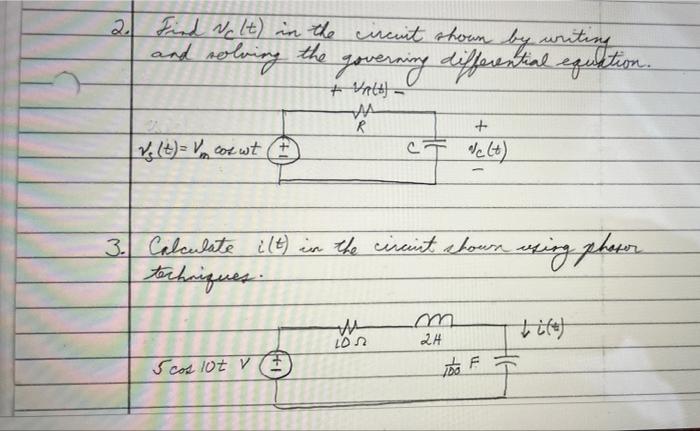 2. Find vc(t) in the circuit shown by writing
and solving the governing differential equation.
+ VR(t) -
R
vs(t) = Vm cos wt
+
-
C
+
vc(t)
-
3. Calculate i(t) in the circuit shown using phasor
techniques.
10Ω
2H
↓ i(t)
5 cos 10t V
+
-
1/100 F